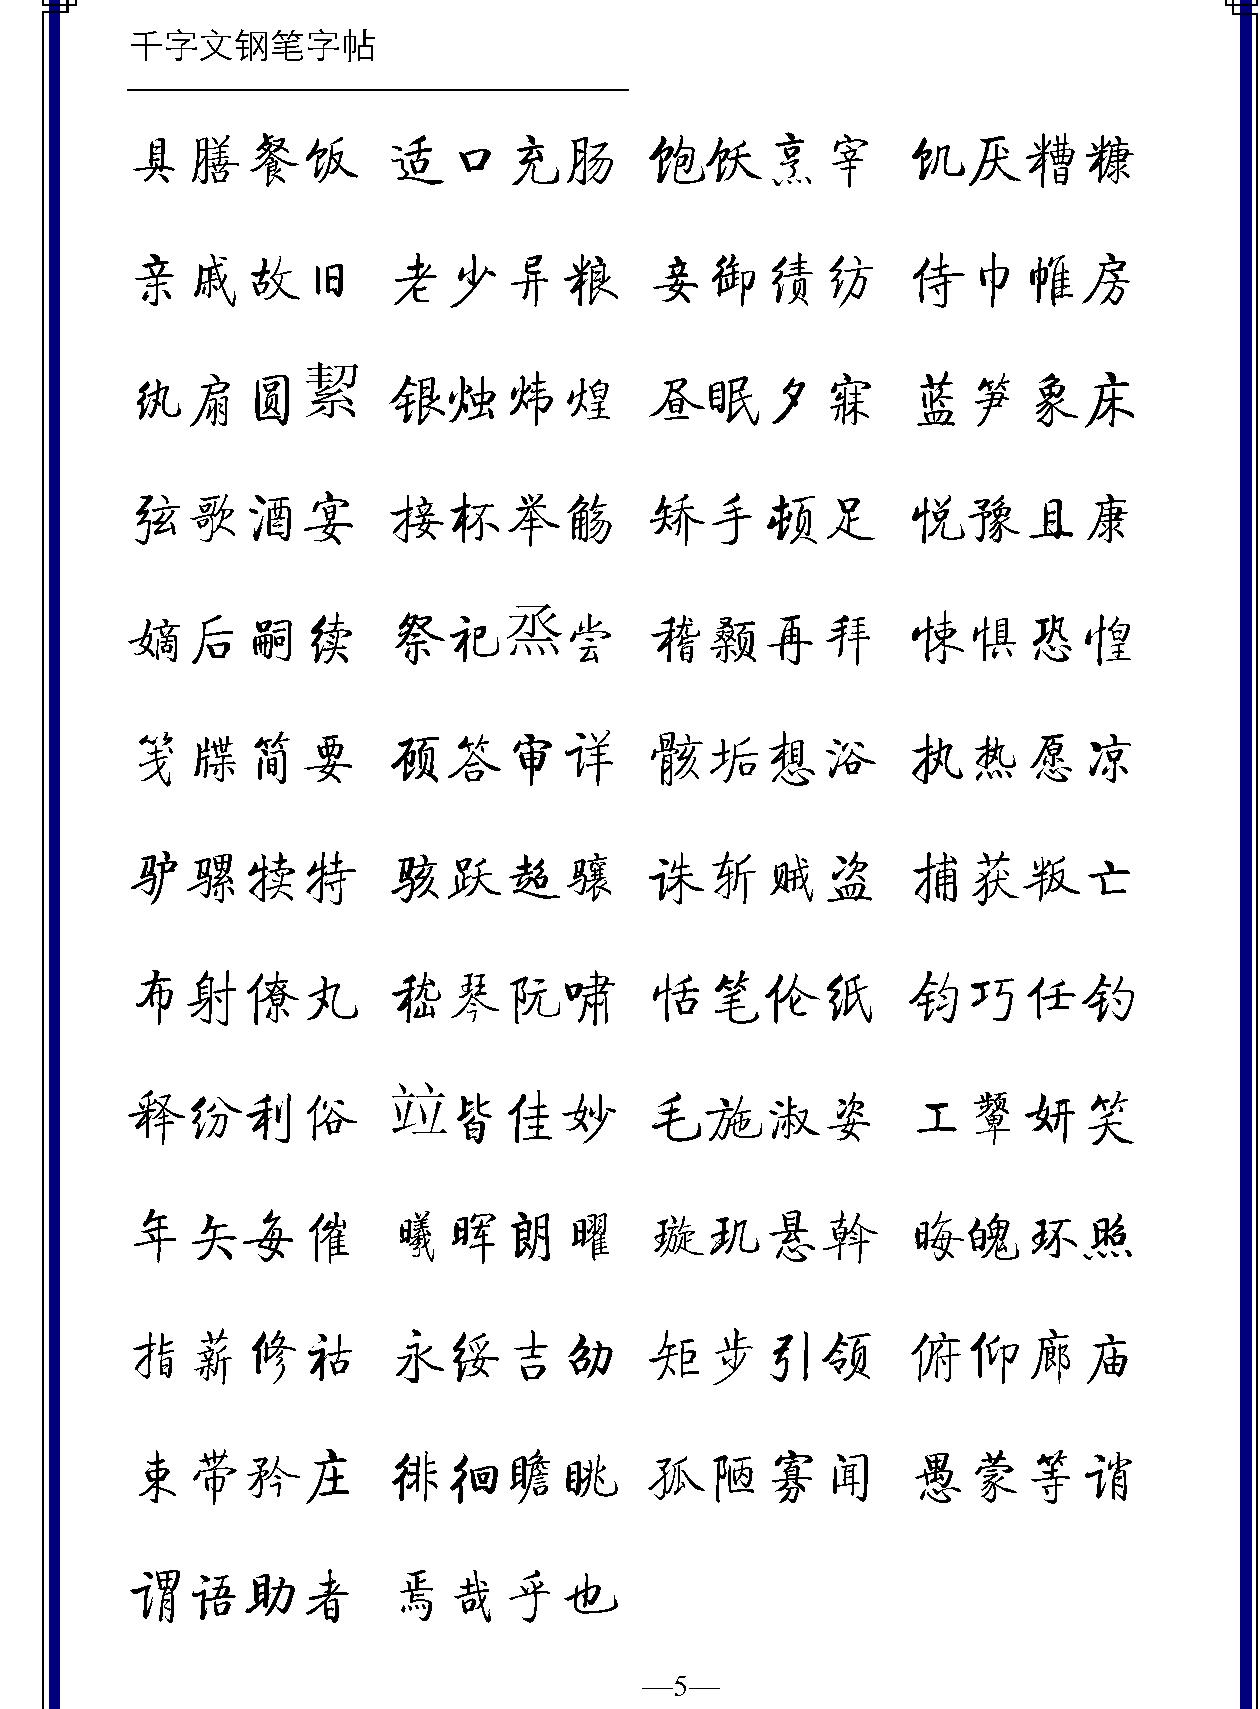 千字文钢笔字帖
具膳餐饭 适口充肠 饱饫烹宰 饥厌糟糠
亲戚故旧 老少异粮 妾御绩纺 侍巾帷房
纨扇圆絜 银烛炜煌 昼眠夕寐 蓝笋象床
弦歌酒宴 接杯举觞 矫手顿足 悦豫且康
嫡后嗣续 祭祀烝尝 稽颡再拜 悚惧恐惶
笺牒简要 顾答审详 骸垢想浴 执热愿凉
驴骡犊特 骇跃超骧 诛斩贼盗 捕获叛亡
布射僚丸 嵇琴阮啸 恬笔伦纸 钧巧任钓
释纷利俗 竝皆佳妙 毛施淑姿 工颦妍笑
年矢每催 曦晖朗曜 璇玑悬斡 晦魄环照
指薪修祜 永绥吉劭 矩步引领 俯仰廊庙
束带矜庄 徘徊瞻眺 孤陋寡闻 愚蒙等诮
谓语助者 焉哉乎也
—5—